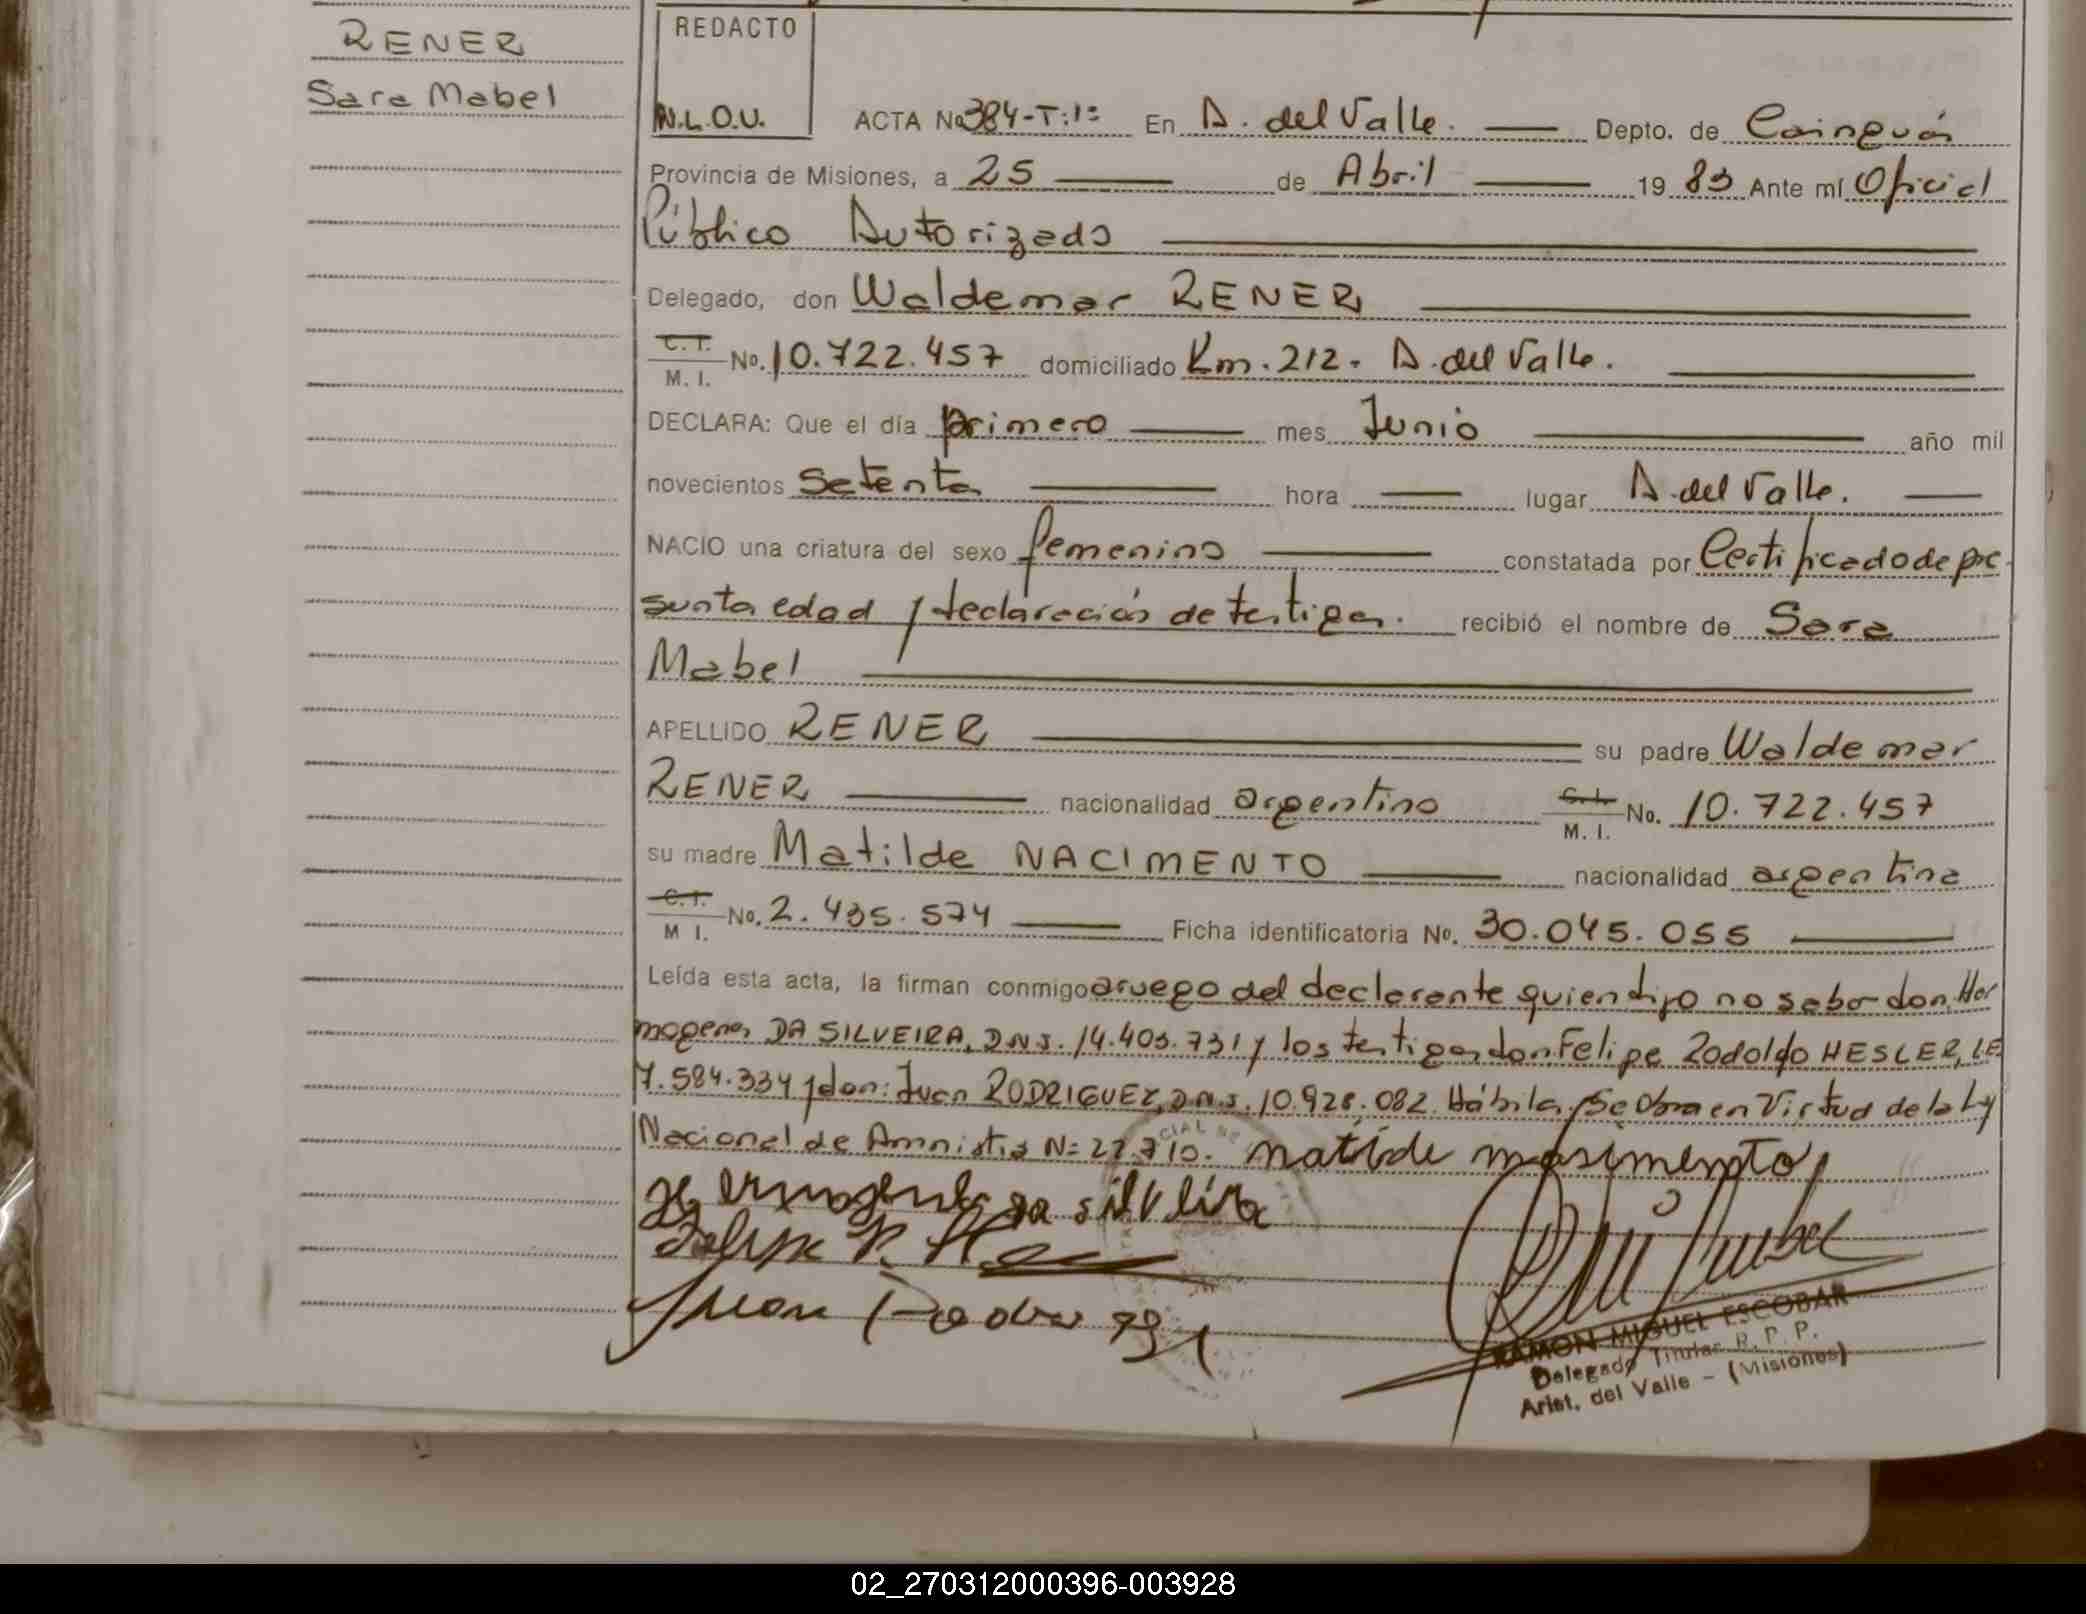 RENER
Sara Mabel
REDACTO
N.L.O.U.
ACTA No 384-T:1º En A. del Valle. Depto. de Cainguás
Provincia de Misiones, a 25 de Abril 1983 Ante mí Oficial
Público Autorizado
Delegado, don Waldemar RENER
C.I. M. I. No. 10.722.457 domiciliado Km. 212. A. del Valle.
DECLARA: Que el día primero mes Junio año mil
novecientos setenta hora lugar A. del Valle.
NACIO una criatura del sexo femenino constatada por Certificado de pre
sunta edad y declaración de testigos. recibió el nombre de Sara
Mabel
APELLIDO RENER su padre Waldemar
RENER nacionalidad argentino C.I. M. I. No. 10.722.457
su madre Matilde NACIMENTO nacionalidad argentina
C.I. M I. No. 2.435.574 Ficha identificatoria No. 30.045.055
Leída esta acta, la firman conmigo a ruego del declarante quien dijo no saber don. Her
mogenes DA SILVEIRA, DNI. 14.403.731 y los testigos don: Felipe Rodolfo HESLER, LE
7.584.334 y don: Juan RODRIGUEZ, DNI. 10.928.082. Hábiles. Se obra en Virtud de la Ley
Nacional de Amnistia Nº 22.710. matilde masimento
Hermogenes da silveira
Felipe R. H
Juan Rodri
RAMON MIGUEL ESCOBAR
Delegado Titular R. P. P.
Arist. del Valle - (Misiones)
02_270312000396-003928